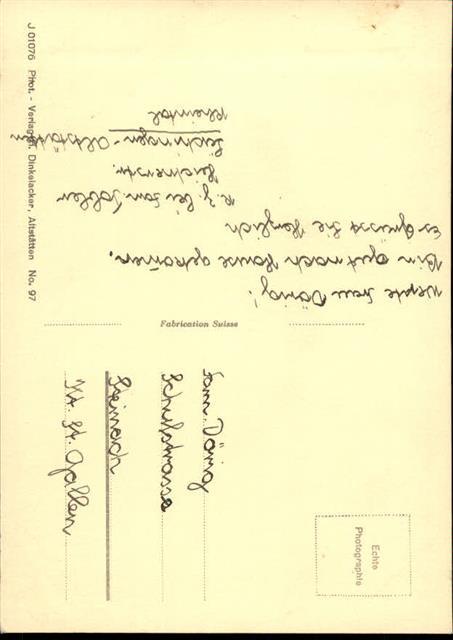 Werte Frau Dörig!
Bin gut nach Hause gekommen.
Es Grüsst Sie Herzlich
R. Z. bei Fam. Tobler
Leuchingen - Altstätten
Rheintal
Fabrication Suisse
Fam. Dörig
Schulstrasse
Steinach
Kt. St. Gallen
Echte
Photographie
J 01076 Phot. - Verlag Dinkelacker, Altstätten No. 97